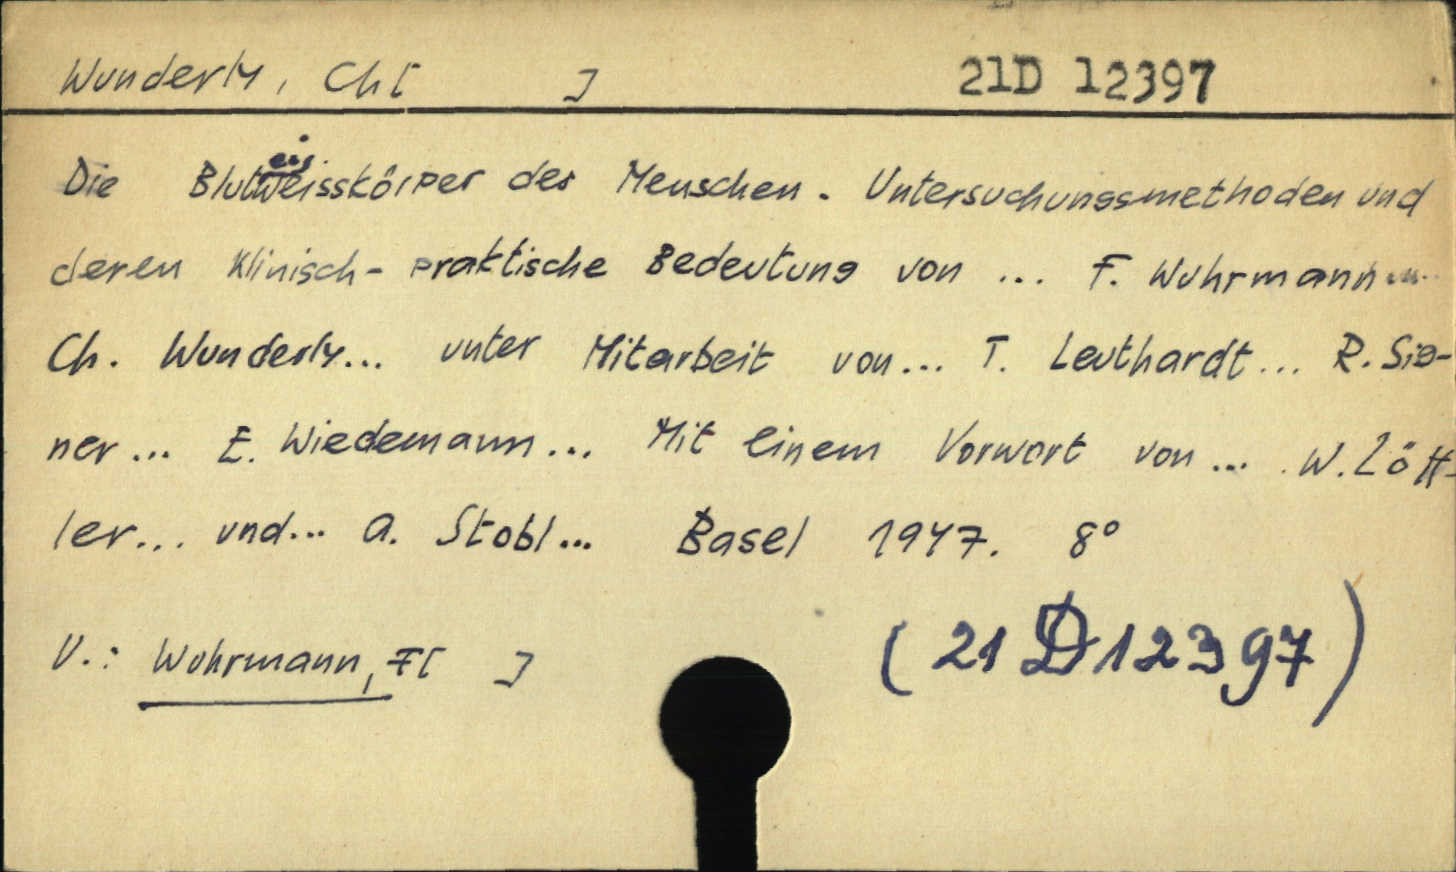 Wunderly, Ch[ ] 21D 12397
Die Bluteiweisskörper des Menschen. Untersuchungsmethoden und
deren klinisch-praktische Bedeutung von ... F. Wuhrmann u.
Ch. Wunderly... unter Mitarbeit von... T. Leuthardt... R. Sig-
ner... E. Wiedemann... Mit einem Vorwort von... W. Löff-
ler... und... A. Stobl... Basel 1947. 8°
V.: Wuhrmann, F[ ] (21 D 12397)